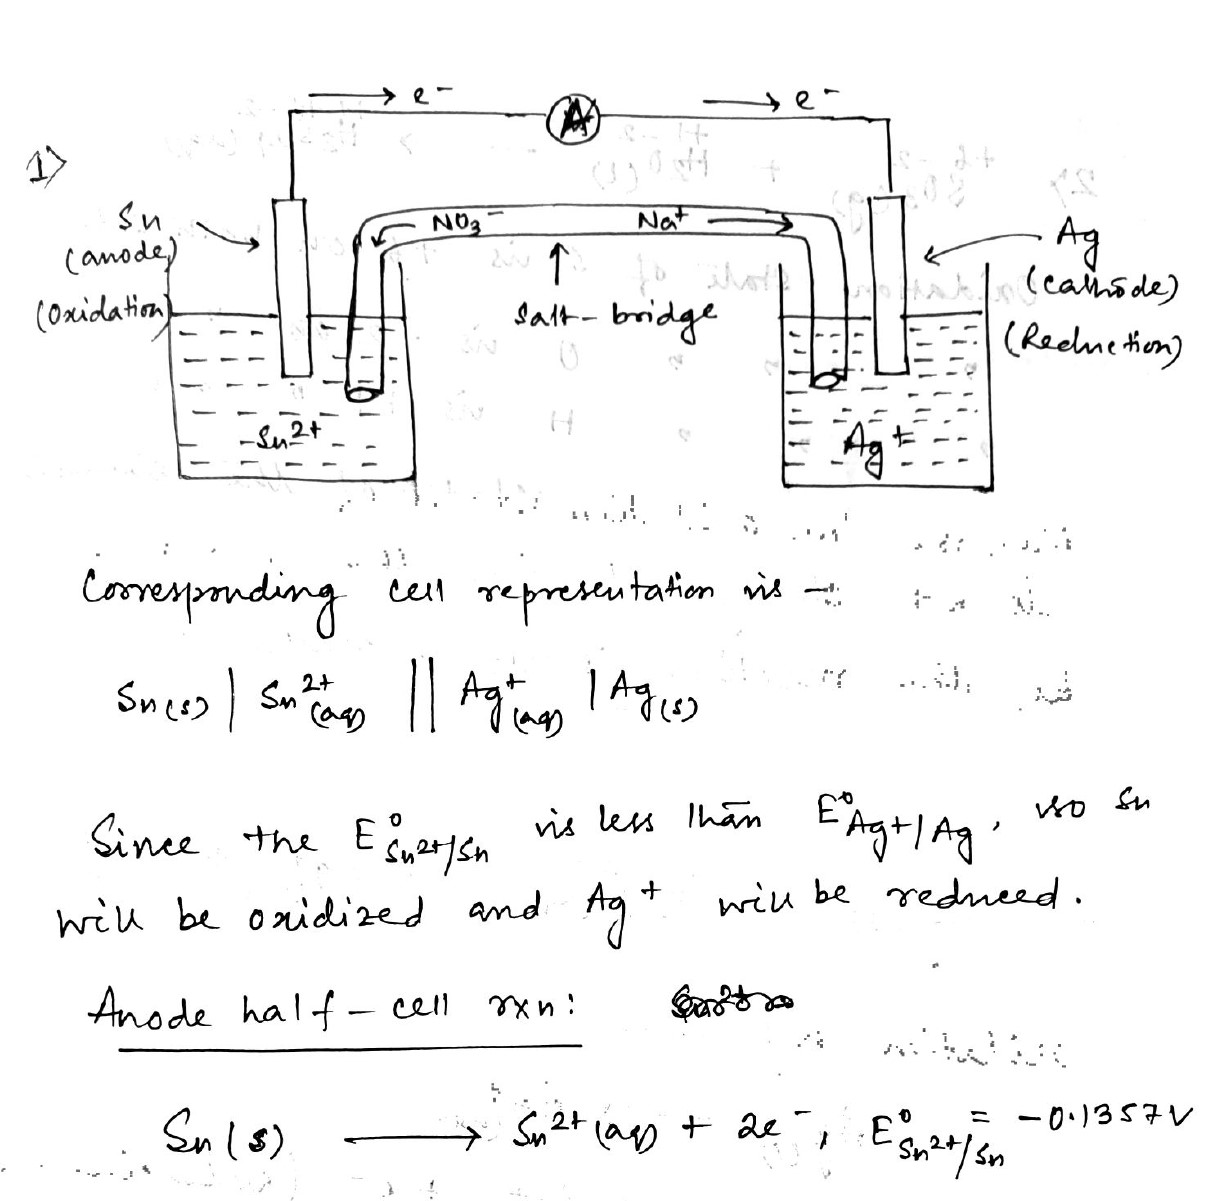 → e⁻ A → e⁻
1)
Sn
(anode)
(Oxidation)
NO₃⁻ Na⁺ →
Salt-bridge
Ag
(Cathode)
(Reduction)
Sn²⁺
Ag⁺
Corresponding cell representation is -
Sn(s) | Sn²⁺(aq) || Ag⁺(aq) | Ag(s)
Since the E°Sn²⁺/Sn is less than E°Ag⁺/Ag, so Sn
will be oxidized and Ag⁺ will be reduced.
Anode half-cell rxn:
Sn(s) ⟶ Sn²⁺(aq) + 2e⁻, E°Sn²⁺/Sn = -0.1357V